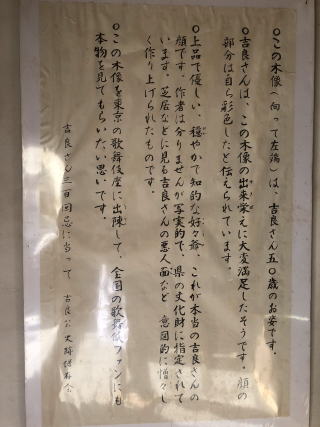 ○この木像(向って左端)は、吉良さん五〇歳のお姿です。
○吉良さんは、この木像の出来栄えに大変満足したそうです。顔の
部分は自ら彩色したと伝えられています。
○上品で優しい、穏やかで知的な好々爺、これが本当の吉良さんの
顔です。作者は分りませんが写実的で、県の文化財に指定されて
います。芝居などに見る吉良さんの悪人面など 意図的に憎々し
く作り上げられたものです。
○この木像を東京の歌舞伎座に出陳して、全国の歌舞伎ファンにも
本物を見てもらいたい思いです。
吉良さん三百回忌に当って 吉良公